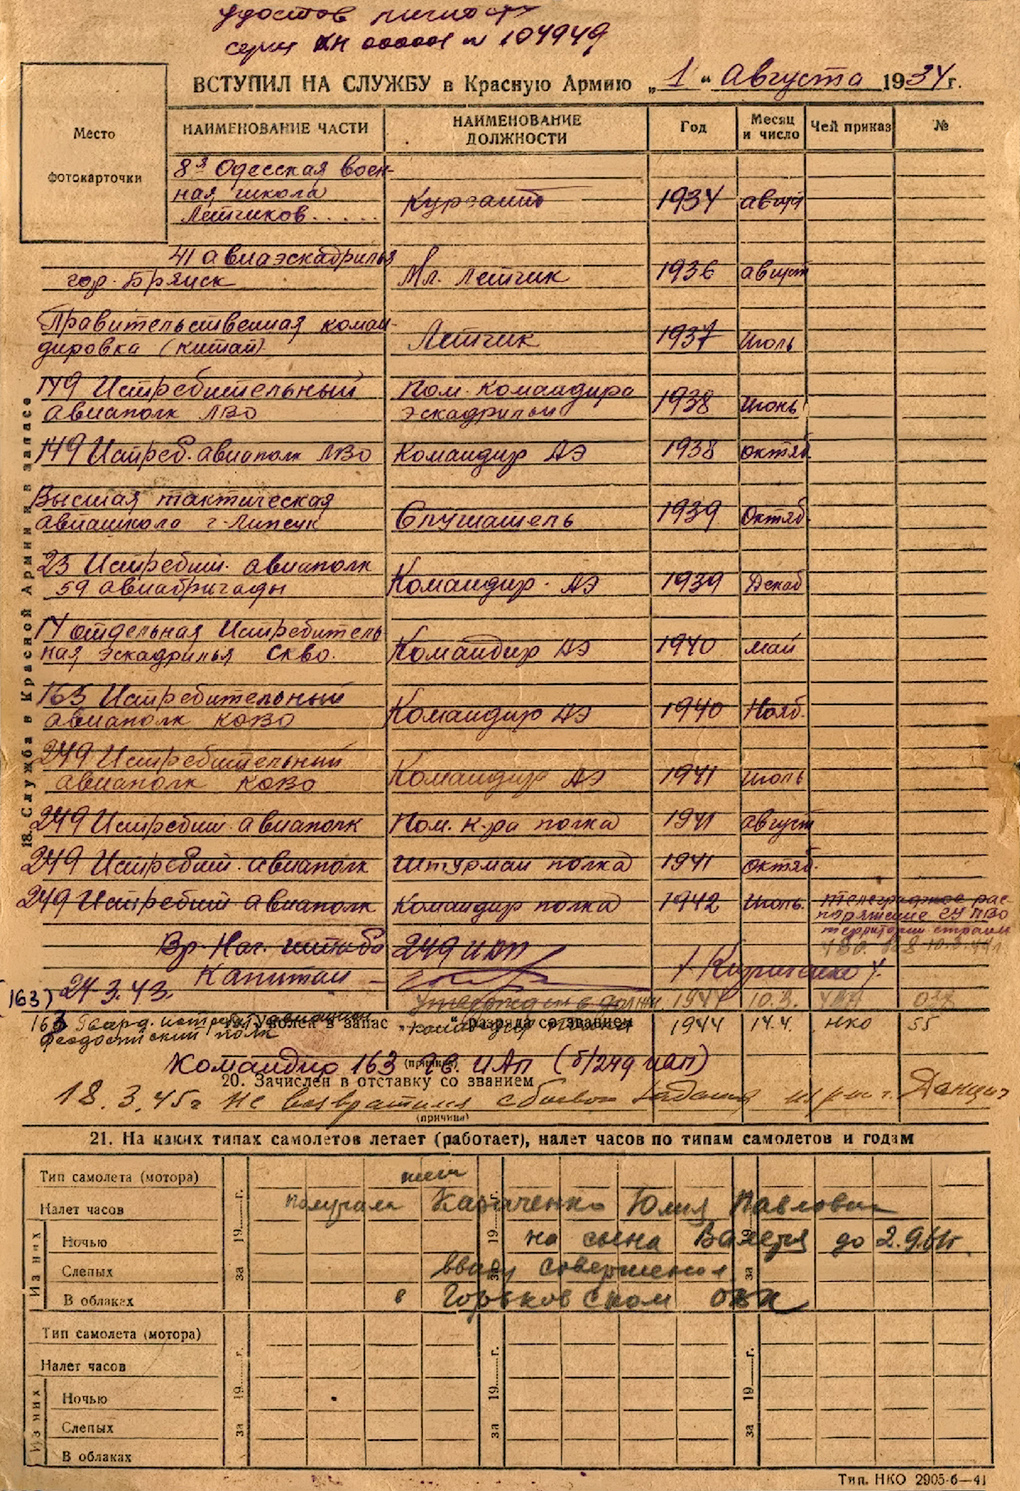 удостов личност
серии КН 00000 № 104949
ВСТУПИЛ НА СЛУЖБУ в Красную Армию „1“ Августа 1934 г.
Место
фотокарточки
НАИМЕНОВАНИЕ ЧАСТИ НАИМЕНОВАНИЕ ДОЛЖНОСТИ Год Месяц и число Чей приказ №
18. Служба в Красной Армии и в запасе
8я Одесская воен-
ная школа
Летчиков..... Курсант 1934 август
41 авиаэскадрилья
гор. Брянск Мл. Летчик 1936 август
Правительственная коман-
дировка (Китай) Летчик 1937 Июль
149 Истребительный Пом. Командира
авиаполк ЛВО эскадрильи 1938 Июнь
149 Истреб. авиаполк ЛВО Командир АЭ 1938 октяб.
Высшая тактическая
авиашкола г. Липецк Слушатель 1939 Октяб.
25 Истребит. авиаполк
59 авиабригады Командир АЭ 1939 Декаб
14 отдельная Истребитель
ная эскадрилья СКВО. Командир АЭ 1940 май
163 Истребительный
авиаполк КОВО Командир АЭ 1940 Нояб.
249 Истребительный
авиаполк КОВО Командир АЭ 1941 Июль
249 Истребит. авиаполк Пом. к-ра полка 1941 август
249 Истребит. авиаполк Штурман полка 1941 октяб.
249 Истребит авиаполк Командир полка 1942 Июль телеграфное рас-
поряжение
территории страны
Вр. Нач. штаба 249 ИАП
Капитан
(163) 24.3.43.
Утвержден в должн 1944 10.3. 028
163 Гвард. истреб. авиацион
феодосийский полк командир полка 1944 14.4. НКО 55
19. Уволен в запас „ “ разряда со званием
Командир 163 гв. ИАП (б/249 иап)
(причина)
20. Зачислен в отставку со званием
18.3.45г Не возвратился с боевого задания при г. Данциг
(причина)
21. На каких типах самолетов летает (работает), налет часов по типам самолетов и годам
Тип самолета (мотора)
Налет часов
Из них
Ночью
Слепых
В облаках
за 19 г.
за 19 г.
за 19 г.
пенс
получала Карначенко Юлия Павловна
на сына Валерия до 2.9.61г.
ввиду совершенол.
в Горьковском ОВК
Тип самолета (мотора)
Налет часов
Из них
Ночью
Слепых
В облаках
за 19 г.
за 19 г.
за 19 г.
Тип. НКО 2905-6—41